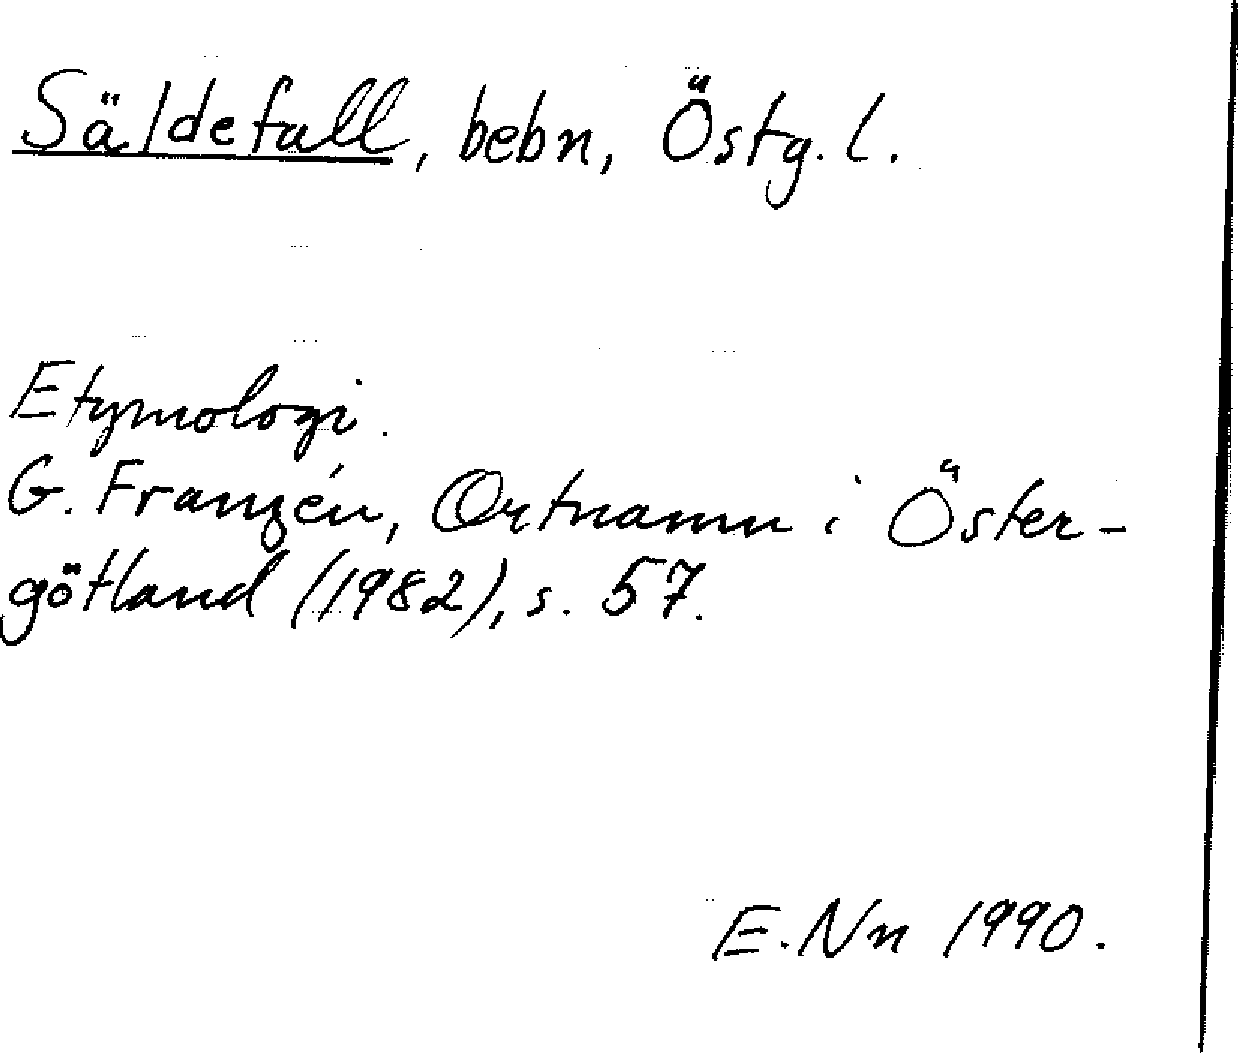 Säldefall, bebn, Östg. l.
Etymologi.
G. Franzén, Ortnamn i Öster-
götland (1982), s. 57.
E. Nn 1990.